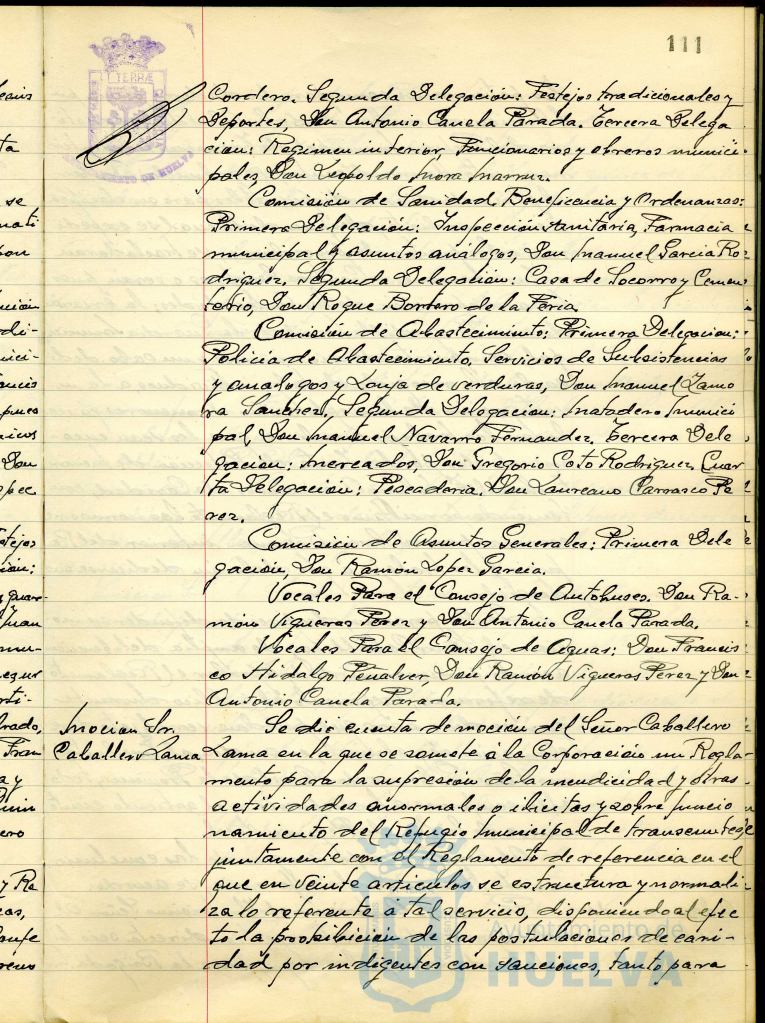 111
Cordero. Segunda Delegación: Festejos tradicionales y
Deportes, Don Antonio Canela Parada. Tercera Delega
ción: Regimen interior, Funcionarios y obreros munici
pales, Don Leopoldo Mora
Comisión de Sanidad, Beneficencia y Ordenanzas:
Primera Delegación: Inspección sanitaria, Farmacia
municipal y asuntos análogos, Don Manuel Garcia Ro
driguez. Segunda Delegación: Casa de Socorro y Cemen
terio, Don Roque Borrero de la Feria
Comisión de Abastecimiento: Primera Delegacion:
Policía de Abastecimiento, Servicios de Subsistencias
y analogos y Lonja de verduras, Don Manuel Zamo
ra Sanchez. Segunda Delegacion: Matadero Munici
pal Don Manuel Navarro Fernandez. Tercera Dele
gacion: Mercados, Don Gregorio Coto Rodriguez. Cuar
ta Delegación: Pescaderia. Don Laureano Carrasco Pe
rez.
Comisión de Asuntos Generales: Primera Dele
gación, Don Ramón Lopez Garcia.
Vocales Para el Consejo de Autobuses. Don Ra-
món Vigueras Perez y Don Antonio Canela Parada.
Vocales Para el Consejo de Aguas: Don Francis
co Hidalgo Peñalver, Don Ramón Vigueras Perez y Don
Antonio Canela Parada.
Mocion Sr.
Caballero Lama
Se dio cuenta de moción del Señor Caballero
Lama en la que se somete á la Corporación un Regla-
mento para la supresión de la mendicidad y otras
actividades anormales o ilicitas y sobre funcio
namiento del Refugio Municipal de transeuntes,
juntamente con el Reglamento de referencia en el
que en veinte articulos se estructura y normali
za lo referente á tal servicio, disponiendo al efec
to la prohibición de las postulaciones de cari-
dad por indigentes con sanciones, tanto para
Ayuntamiento de
HUELVA